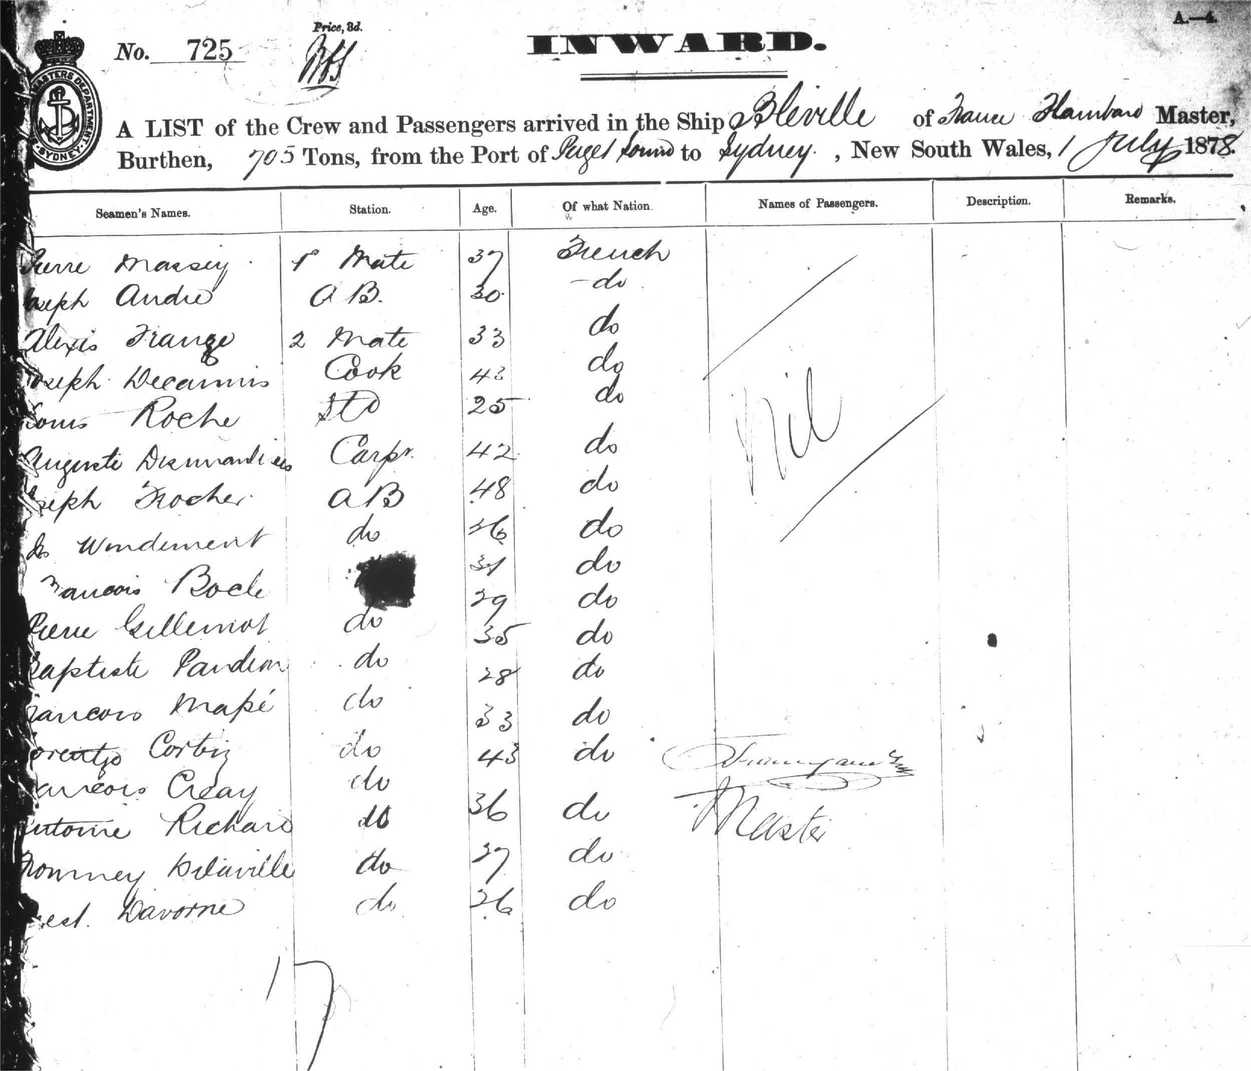 A.—4.
Price, 3d.
No. 725
INWARD.
MASTERS DEPARTMENT
SYDNEY
A LIST of the Crew and Passengers arrived in the Ship Bléville of France Flambard Master,
Burthen, 705 Tons, from the Port of Puget Sound to Sydney. , New South Wales, 1 July 1878.
Seamen's Names. Station. Age. Of what Nation. Names of Passengers. Description. Remarks.
Pierre Massey 1 Mate 37 French
Joseph André A B. 30 do
Alexis Frange 2 Mate 33 do
Joseph Decannis Cook 43 do
Louis Roche Std 25 do
Nil
Auguste Carpr. 42 do
Joseph Frocher A B 48 do
Windement do 26 do
Francois Bocle 31 do
Pierre Gillemot do 29 do
Baptiste do 35 do
Francois Mapé do 28 do
Corbiz do 33 do
Francois Creay do 43 do
Antoine Richard do 36 do
Master
do 27 do
Davorne do 26 do
17